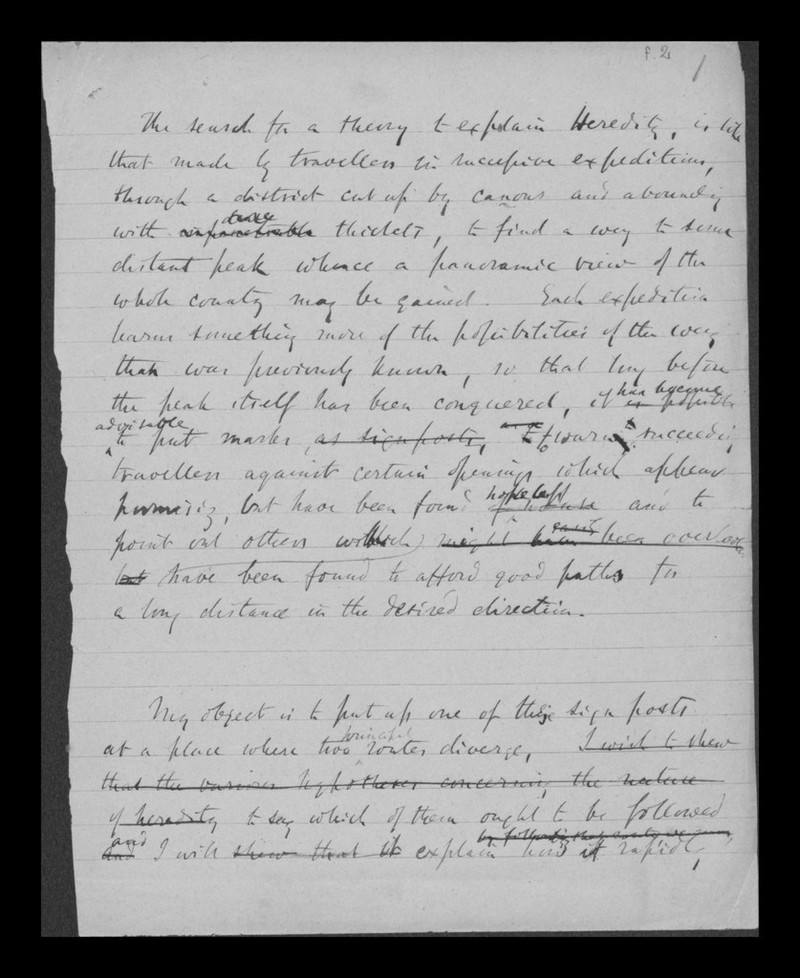 f. 2
1
The search for a theory to explain Heredity, is like
that made by travellers in successive expeditions,
through a district cut up by cañons and abounding
dense
with impenetrable thickets, to find a way to some
distant peak whence a panoramic view of the
whole country may be gained. Each expedition
learns something more of the possibilities of the way
than was previously known, so that long before
the peak itself has been conquered, it is possible
has become
advisable
to put marks, as signposts, to warn succeeding
travellers against certain openings which appear
promising, but have been found hopeless and to
point out others which, might have been overlooked
easily
but have been found to afford good paths for
a long distance in the desired direction.
My object is to put up one of these sign posts
principal
at a place where two routes diverge, I wish to shew
that the various hypotheses concerning the nature
of heredity to say which of them ought to be followed
and
and I will shew that it explain how it rapidly